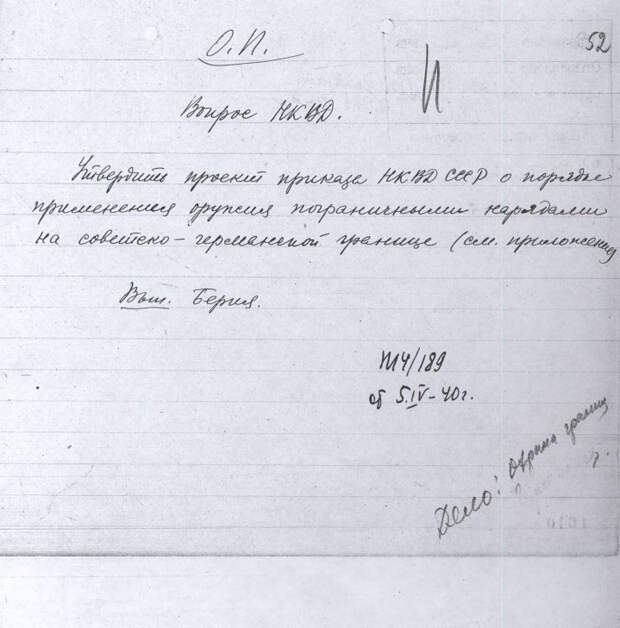 52
О.П.
Вопрос НКВД.
Утвердить проект приказа НКВД СССР о порядке
применения оружия пограничными нарядами
на советско-германской границе (см. приложение)
Вып. Берия.
П14/189
от 5.IV-40г.
Дело: Охрана границ